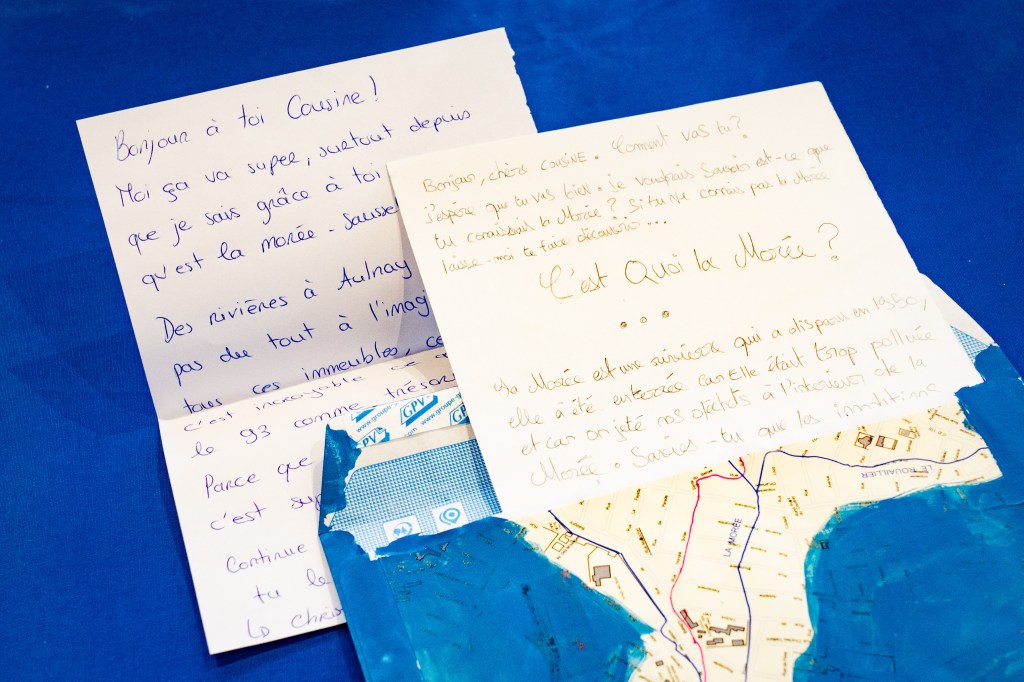 Bonjour à toi Cousine!
Moi ça va super, surtout depuis
que je sais grâce à toi
qu'est la morée. Sausse
Des rivières à Aulnay
pas du tout à l'imag
tous ces immeubles, ce
c'est incroyable ce
le 93 comme trésor
Parce que
c'est sup
Continue
tu le
Bonjour, chère cousine. Comment vas tu?
J'espère que tu vas bien. je voudrais savoir est-ce que
tu connaissais la Morée? Si tu ne connais pas la Morée
laisse-moi te faire découvrir...
C'est Quoi la Morée?
...
La Morée est une rivière qui a disparu en 1950,
elle a été enterrée car Elle était trop polluée
et car on jeté nos déchets à l'intérieur de la
Morée. Savais-tu que les
www.groupe-g
GPV
GPV
LA MORÉE
LE ROUAILLIER